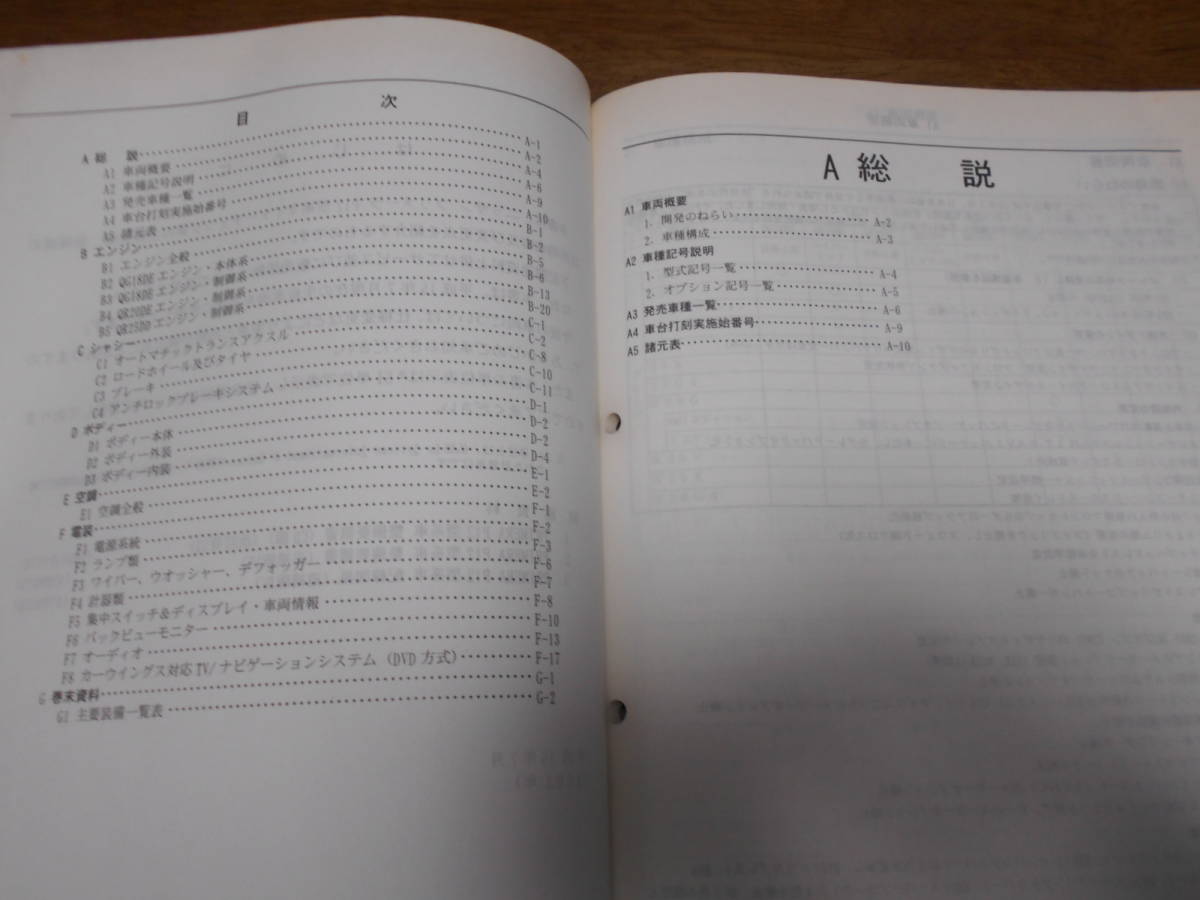 目 次
A 総 説 A-1
A1 車両概要 A-2
A2 車種記号説明 A-4
A3 発売車種一覧 A-6
A4 車台打刻実施始番号 A-9
A5 諸元表 A-10
B エンジン B-1
B1 エンジン全般 B-2
B2 QG18DEエンジン・本体系 B-5
B3 QG18DEエンジン・制御系 B-6
B4 QR20DEエンジン・制御系 B-13
B5 QR25DDエンジン・制御系 B-20
C シャシー C-1
C1 オートマチックトランスアクスル C-2
C2 ロードホイール及びタイヤ C-8
C3 ブレーキ C-10
C4 アンチロックブレーキシステム C-11
D ボディー D-1
D1 ボディー本体 D-2
D2 ボディー外装 D-2
D3 ボディー内装 D-4
E 空調 E-1
E1 空調全般 E-2
F 電装 F-1
F1 電源系統 F-2
F2 ランプ類 F-3
F3 ワイパー、ウオッシャー、デフォッガー F-6
F4 計器類 F-7
F5 集中スイッチ&ディスプレイ・車両情報 F-8
F6 バックビューモニター F-10
F7 オーディオ F-13
F8 カーウイングス対応TV/ナビゲーションシステム (DVD方式) F-17
G 巻末資料 G-1
G1 主要装備一覧表 G-2
A 総 説
A1 車両概要
1. 開発のねらい A-2
2. 車種構成 A-3
A2 車種記号説明
1. 型式記号一覧 A-4
2. オプション記号一覧 A-5
A3 発売車種一覧 A-6
A4 車台打刻実施始番号 A-9
A5 諸元表 A-10